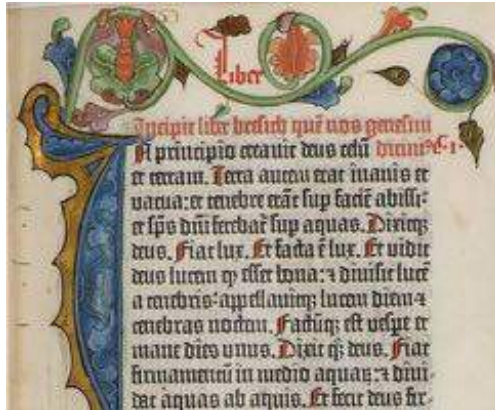 Liber
Incipit liber bresich quē nos genesim
In principio creavit deus celū dicimꝰ C· 1·
et terram. Terra autem erat inanis et
vacua: et tenebre erāt sup faciē abissi:
et spūs dn̄i ferebat̄ sup aquas. Dixitqꝫ
deus. Fiat lux. Et facta ē lux. Et vidit
deus lucem qꝫ esset bona: ⁊ divisit lucē
a tenebris· appellavitqꝫ lucem diem ⁊
tenebras noctem. Factūqꝫ est vespe et
mane dies unus. Dixit qꝫ deus. Fiat
firmamentū in medio aquaꝝ: ⁊ divi-
dat aquas ab aquis. Et fecit deus fir-